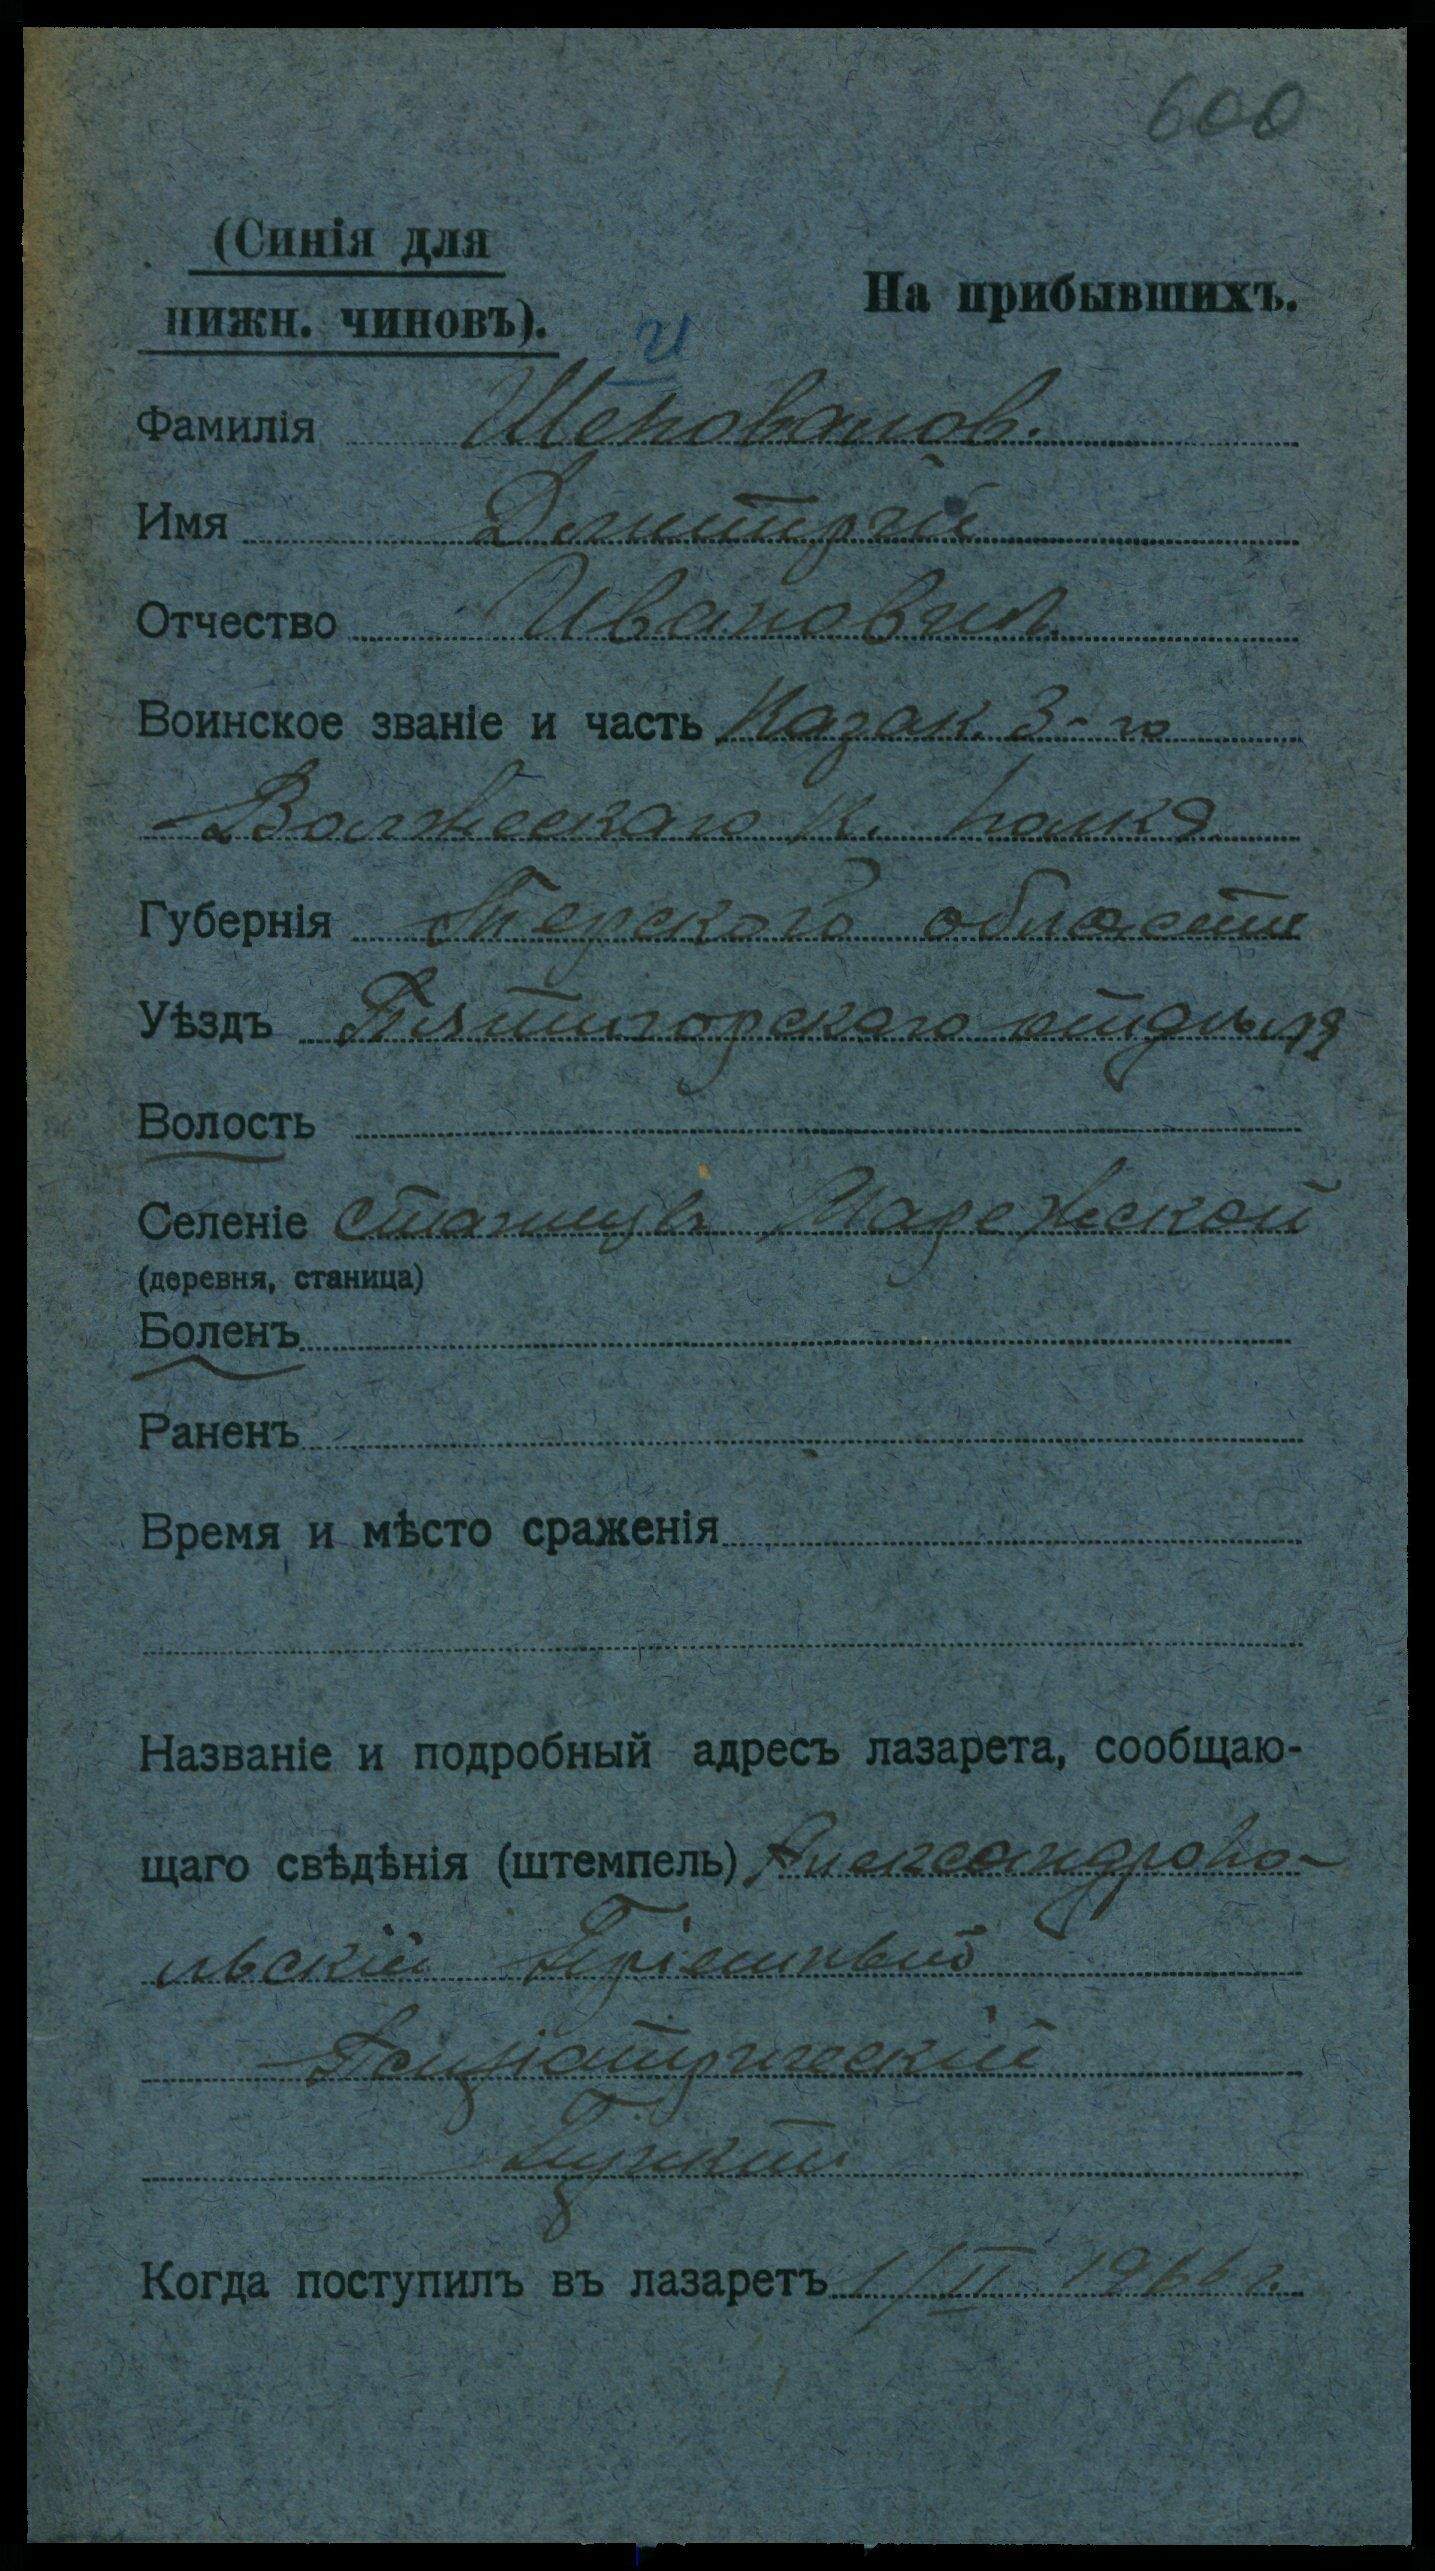 600
(Синія для
нижн. чиновъ).
На прибывшихъ.
и
Фамилія Шеповалов.
Имя Дмитрій
Отчество Иванович
Воинское званіе и часть Казак. 3-го
Волжскаго К. полка
Губернія Терской области
Уѣздъ Пятигорскаго отдѣла
Волость
Селеніе станицы
(деревня, станица)
Боленъ
Раненъ
Время и мѣсто сраженія
Названіе и подробный адресъ лазарета, сообщаю-
щаго свѣдѣнія (штемпель) Александропо-
льскій Пріемный
Псхіатрическій
Пункт
Когда поступилъ въ лазаретъ 1/II 1916 г.